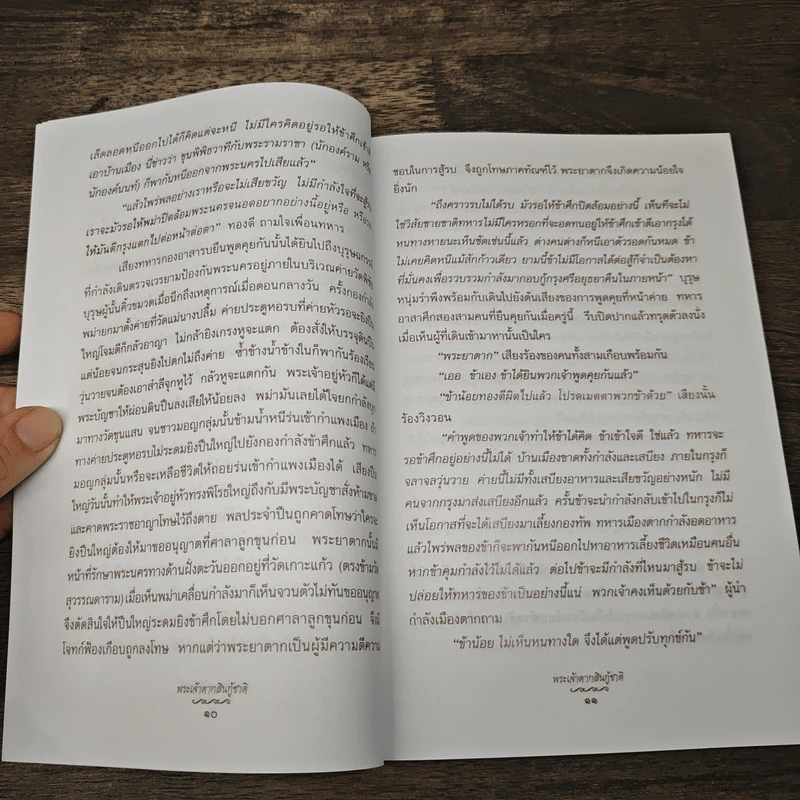 เล็ดลอดหนีออกไปได้ก็คิดแต่จะหนี ไม่มีใครคิดอยู่รอให้ข้าศึกเข้า
เอาบ้านเมือง นี่ข่าวว่า ขุนพิพิธวาทีกับพระรามราชา (นักองค์ราม หรือ
นักองค์นนท์) ก็พากันหนีออกจากพระนครไปเสียแล้ว”
“แล้วไพร่พลอย่างเราหรือจะไม่เสียขวัญ ไม่มีกำลังใจที่จะสู้
เราจะมัวรอให้พม่าปิดล้อมพระนครจนอดอยากอย่างนี้อยู่หรือ หรือ
ให้มันตีกรุงแตกไปต่อหน้าต่อตา” ทองดี ถามใจเพื่อนทหาร
เสียงทหารกองอาสารบยืนพูดคุยกันนั้นได้ยินไปถึงบุรุษฉกรรจ์
ที่กำลังเดินตรวจเวรยามป้องกันพระนครอยู่ภายในบริเวณค่ายวัดพิชัย
บุรุษผู้นั้นคิ้วขมวดเมื่อนึกถึงเหตุการณ์เมื่อตอนกลางวัน ครั้งกองกำลัง
พม่ายกมาตั้งค่ายที่วัดแม่นางปลื้ม ค่ายประตูหอรบที่ค่ายหัวรอจะยิงปืน
ใหญ่โจมตีก็กลัวอาญา ไม่กล้ายิงเกรงหูจะแตก ต้องสั่งให้บรรจุดินปืน
แต่น้อยจนกระสุนยิงไปตกไม่ถึงค่าย ซ้ำช้างน้ำข้างในก็พากันร้องเรียน
วุ่นวายจนต้องเอาสำลีจุกหูไว้ กลัวหูจะแตกกัน พระเจ้าอยู่หัวก็ได้แต่มี
พระบัญชาให้ผ่อนดินปืนลงเสียให้น้อยลง พม่ามันเลยได้ใจยกกำลังบุก
มาทางวัดขุนแสน จนชาวมอญกลุ่มนั้นข้ามน้ำหนีร่นเข้ากำแพงเมือง ถ้า
ทางค่ายประตูหอรบไม่ระดมยิงปืนใหญ่ไปยังกองกำลังข้าศึกแล้ว ทหาร
มอญกลุ่มนั้นหรือจะเหลือชีวิตให้ถอยร่นเข้ากำแพงเมืองได้ เสียงปืน
ใหญ่วันนั้นทำให้พระเจ้าอยู่หัวทรงพิโรธใหญ่ถึงกับมีพระบัญชาสั่งห้ามขาด
และคาดพระราชอาญาโทษไว้ถึงตาย พลประจำปืนถูกคาดโทษว่าใครจะ
ยิงปืนใหญ่ต้องให้มาขออนุญาตที่ศาลาลูกขุนก่อน พระยาตากนั้นมี
หน้าที่รักษาพระนครทางด้านฝั่งตะวันออกอยู่ที่วัดเกาะแก้ว (ตรงข้ามวัด
สุวรรณดาราม) เมื่อเห็นพม่าเคลื่อนกำลังมาก็เห็นจวนตัวไม่ทันขออนุญาต
จึงตัดสินใจให้ปืนใหญ่ระดมยิงข้าศึกโดยไม่บอกศาลาลูกขุนก่อน จึงมี
โจทก์ฟ้องเกือบถูกลงโทษ หากแต่ว่าพระยาตากเป็นผู้มีความดีความ
พระเจ้าตากสินกู้ชาติ
๑๐
ชอบในการสู้รบ จึงถูกโทษภาคทัณฑ์ไว้ พระยาตากจึงเกิดความน้อยใจ
ยิ่งนัก
“ถึงคราวรบไม่ได้รบ มัวรอให้ข้าศึกปิดล้อมอย่างนี้ เห็นทีจะไม่
ใช่วิสัยชายชาติทหารไม่มีใครหรอกที่จะอดทนอยู่ให้ข้าศึกเข้าตีเอากรุงได้
หนทางหายนะเห็นชัดเช่นนี้แล้ว ต่างคนต่างก็หนีเอาตัวรอดกันหมด ข้า
ไม่เคยคิดหนีแม้สักก้าวเดียว ยามนี้ข้าไม่มีโอกาสได้ต่อสู้ก็จำเป็นต้องหา
ที่มั่นคงเพื่อรวบรวมกำลังมากอบกู้กรุงศรีอยุธยาคืนในภายหน้า” บุรุษ
หนุ่มรำพึงพร้อมกับเดินไปยังต้นเสียงของการพูดคุยที่หน้าค่าย ทหาร
อาสาศึกสองสามคนที่ยืนคุยกันเมื่อครู่นี้ รีบปิดปากแล้วทรุดตัวลงนั่ง
เมื่อเห็นผู้ที่เดินเข้ามาหานั้นเป็นใคร
“พระยาตาก” เสียงร้องของคนทั้งสามเกือบพร้อมกัน
“เออ ข้าเอง ข้าได้ยินพวกเจ้าพูดคุยกันแล้ว”
“ข้าน้อยทองดีผิดไปแล้ว โปรดเมตตาพวกข้าด้วย” เสียงนั้น
ร้องวิงวอน
“คำพูดของพวกเจ้าทำให้ข้าได้คิด ข้าเข้าใจดี ใช่แล้ว ทหารจะ
รอข้าศึกอยู่อย่างนี้ไม่ได้ บ้านเมืองขาดทั้งกำลังและเสบียง ภายในกรุงก็
จลาจลวุ่นวาย ค่ายนี้ไม่มีทั้งเสบียงอาหารและเสียขวัญอย่างหนัก ไม่มี
คนจากกรุงมาส่งเสบียงอีกแล้ว ครั้นข้าจะนำกำลังกลับเข้าไปในกรุงก็ไม่
เห็นโอกาสที่จะได้เสบียงมาเลี้ยงกองทัพ ทหารเมืองตากกำลังอดอาหาร
แล้วไพร่พลของข้าก็จะพากันหนีออกไปหาอาหารเลี้ยงชีวิตเหมือนคนอื่น
หากข้าคุมกำลังไว้ไม่ได้แล้ว ต่อไปข้าจะมีกำลังที่ไหนมาสู้รบ ข้าจะไม่
ปล่อยให้ทหารของข้าเป็นอย่างนี้แน่ พวกเจ้าคงเห็นด้วยกับข้า” ผู้นำ
กำลังเมืองตากถาม
“ข้าน้อย ไม่เห็นหนทางใด จึงได้แต่พูดปรับทุกข์กัน”
พระเจ้าตากสินกู้ชาติ
๑๑